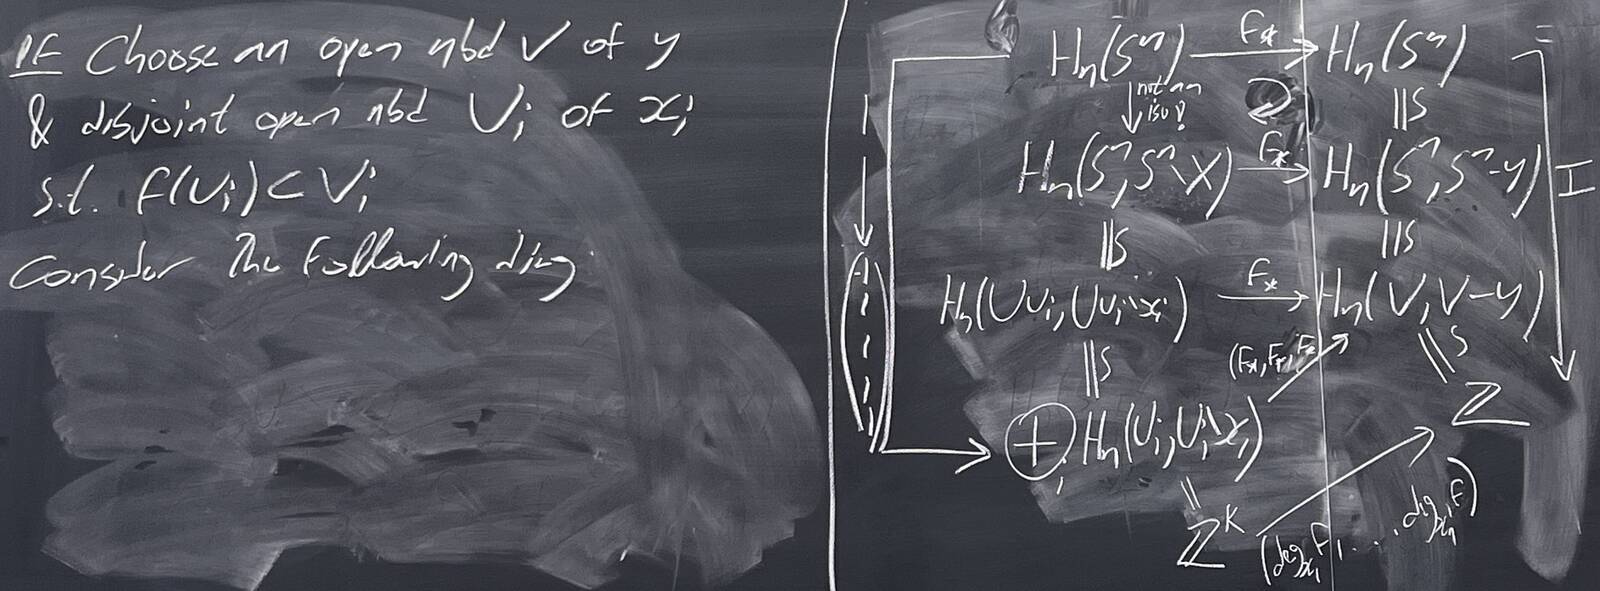 PF Choose an open nbd V of y
& disjoint open nbd Ui of xi
s.t. f(Ui) ⊂ Vi
Consider the following diag.
Hn(Sⁿ) —f*→ Hn(Sⁿ)
↓ not an iso! ≅
Hn(Sⁿ, Sⁿ\X) —f*→ Hn(Sⁿ, Sⁿ-y)
≅ ≅ 1
Hn(∪Ui, ∪Ui\xi) —f*→ Hn(V, V-y)
≅ (f*, f*, f*) ≅
⊕i Hn(Ui, Ui\xi) ℤ
=
ℤᵏ (deg_x1 f, ..., deg_xn f)
(1 1 1 1)